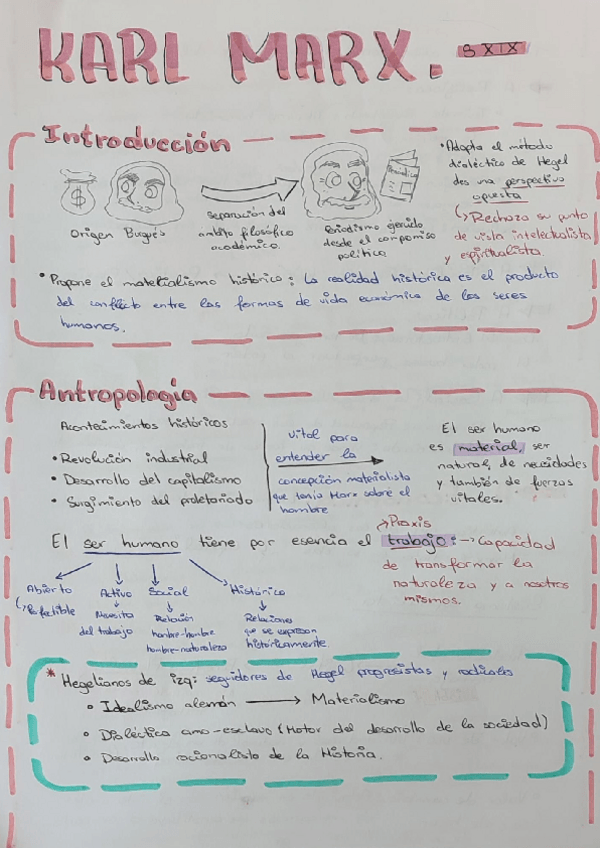 KARL MARX.
S XIX
Introducción
$
Origen Bugués
separación del
ambito filosófico
académico.
Periodismo ejercido
desde el compromiso
político
• Adopta el método
dialéctico de Hegel
des una perspectiva
opuesta
Rechaza su punto
de vista intelectualista
y espiritualista.
• Propone el materialismo histórico: La realidad histórica es el producto
del conflicto entre las formas de vida económica de los seres
humanos.
Antropología
Acontecimientos históricos
• Revolución industrial
• Desarrollo del capitalismo
• Surgimiento del proletariado
vital para
entender la
concepción materialista
que tenía Marx sobre el
hombre
El ser humano
es material, ser
natural, de necesidades
y también de fuerzas
vitales.
El ser humano tiene por esencia el trabajo: → Capacidad
→ Praxis
de transformar la
naturaleza y a nosotros
mismos.
Abierto
Perfectible
Activo
Necesita
del trabajo
Social
Relación
hombre-hombre
hombre-naturaleza
Histórico
Relaciones
que se expresan
históricamente.
* Hegelianos de izq: seguidores de Hegel progresistas y radicales
• Idealismo alemán → Materialismo
• Dialéctica amo-esclavo (Motor del desarrollo de la sociedad)
• Desarrollo racionalista de la Historia.